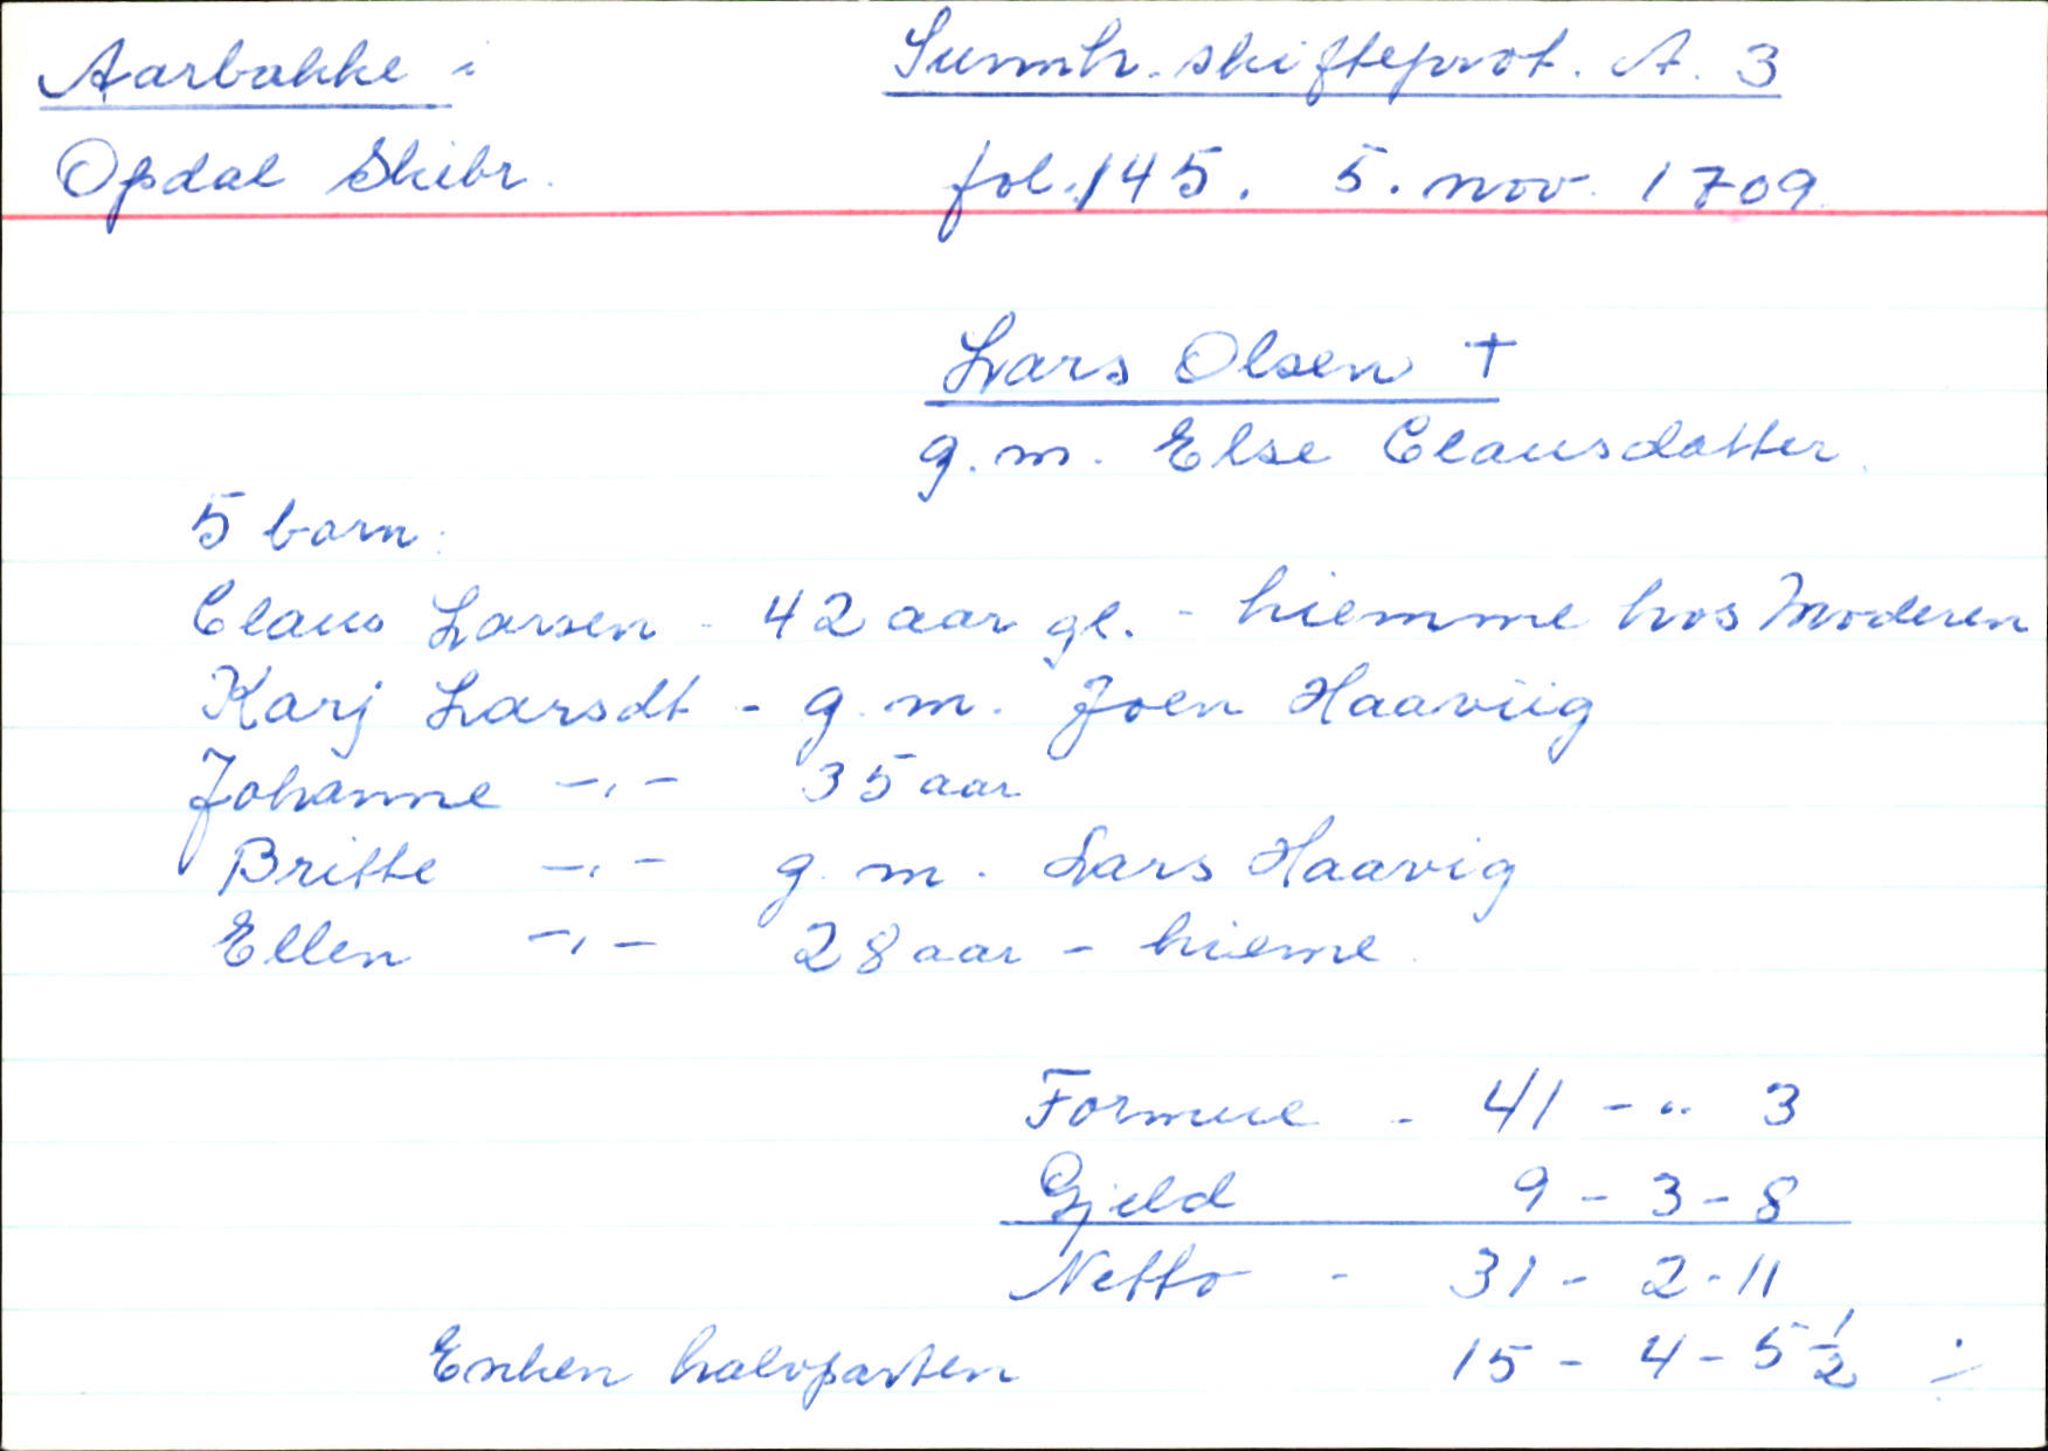 Aarbakke i
Sunnh. skifteprot. A. 3
Opdal Skibr.
fol. 145. 5. nov. 1709
Lars Olsen †
g. m. Else Clausdatter.
5 barn:
Claus Larsen - 42 aar gl. - hiemme hos Moderen
Karj Larsdt - g. m. Joen Haaviig
Johanne -"- 35 aar
Britte -"- g. m. Lars Haavig
Ellen -"- 28 aar - hieme.
Formue - 41 - " 3
Gjeld 9 - 3 - 8
Netto - 31 - 2 - 11
Enken halvparten 15 - 4 - 5 1/2 ÷